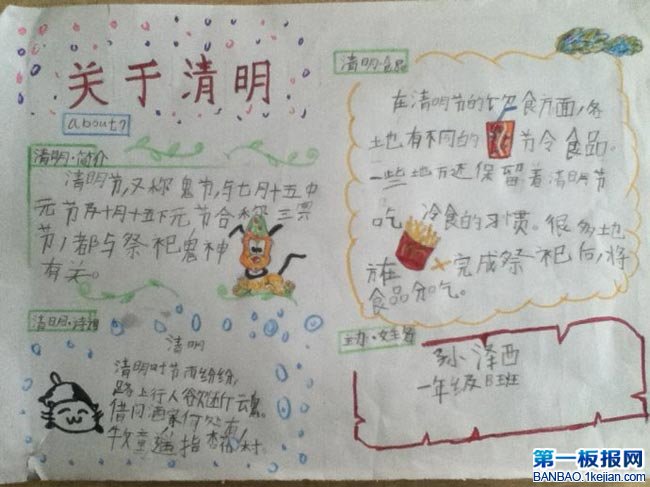 关于清明
about
清明·简介
清明节,又称鬼节,与七月十五中
元节及十月十五下元节合称三冥
节,都与祭祀鬼神
有关。
清明·食品
在清明节的饮食方面,各
地有不同的节令食品。
一些地方还保留着清明节
吃冷食的习惯。很多地
方在完成祭祀后,将
食品分吃。
清明·诗词
清明
清明时节雨纷纷,
路上行人欲断魂。
借问酒家何处有,
牧童遥指杏花村。
主办·
孙泽西
一年级B班
第一板报网
BANBAO.1kejian.com